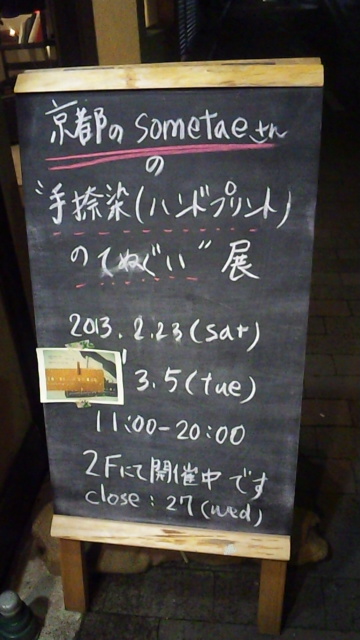 京都の sometaeさん
の
"手捺染(ハンドプリント)
のてぬぐい"展
2013.2.23(sat)
3.5(tue)
11:00-20:00
2Fにて開催中です
close:27(wed)